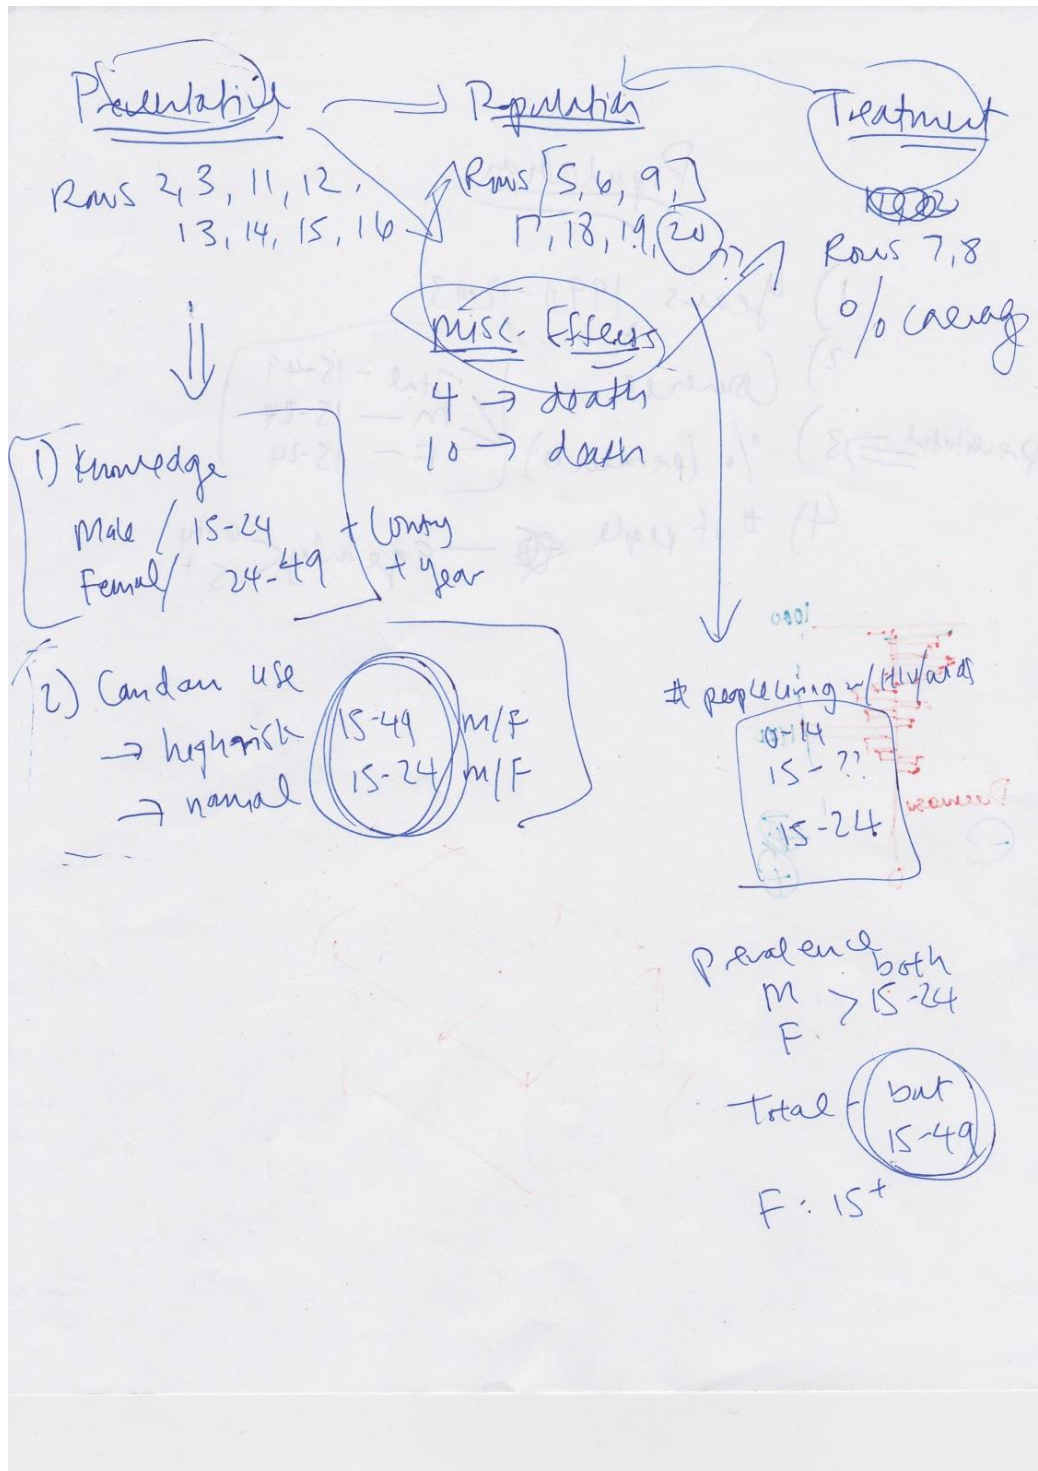 Preventative
Population
Treatment
Rows 2, 3, 11, 12,
13, 14, 15, 16
Rows [5, 6, 9,]
17, 18, 19, 20 ??
Rows 7, 8
% coverag
misc. Effects
4 → death
10 → death
1) Knowledge
Male / 15-24
Female/ 24-49
+ Country
+ year
2) Condom use
→ high risk 15-49 m/F
→ normal 15-24 m/F
# people living w/HIV/aids
0-14
15-??
15-24
Prevalence
both
M > 15-24
F.
Total - but
15-49
F: 15+